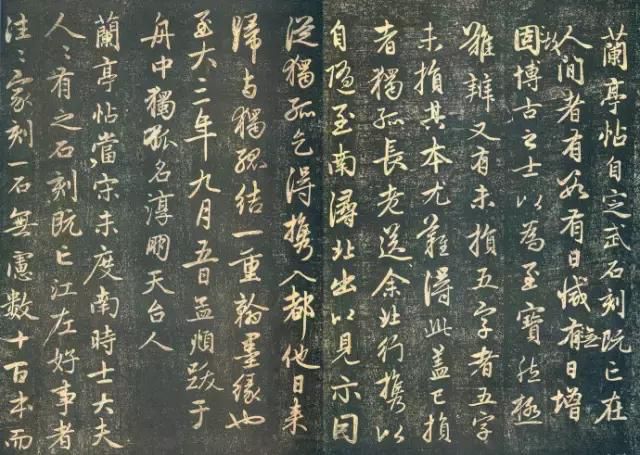 蘭亭帖自定武石刻既亡在
人間者有數有日減無日增
固博古之士以為至寶然極
難辨又有未損五字者五字
未損其本尤難得此蓋已損
者獨孤長老送余北行攜以
自隨至南潯北出以見示因
從獨孤乞得攜入都他日来
歸与獨孤結一重翰墨緣也
至大三年九月五日孟頫跋于
舟中獨孤名淳朋天台人
蘭亭帖當宋未度南時士大夫
人〻有之石刻既亡江左好事者
往〻家刻一石無慮數十百本而